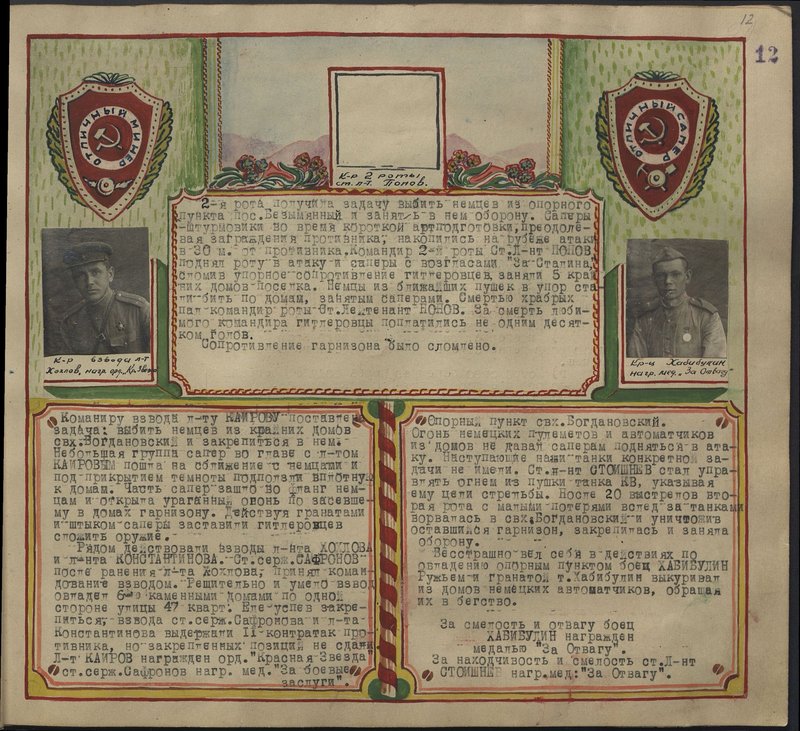 12
12
ОТЛИЧНЫЙ МИНЕР
ОТЛИЧНЫЙ САПЕР
К-р 2 роты
ст. л-т. Попов.
2-я рота получила задачу выбить немцев из опорного
пункта пос.Безымянный и занять в нем оборону. Саперы
-штурмовики во время короткой артподготовки,преодоле-
вая заграждения противника, накопились на рубеже атаки
в 30 м. от противника.Командир 2-й роты Ст.Л-нт ПОПОВ
поднял роту в атаку и саперы с возгласами "За Сталина",
сломив упорное сопротивление гитлеровцев,заняли 5 край
них домов поселка. Немцы из ближайших пушек в упор ста-
ли бить по домам, занятым саперами. Смертью храбрых
пал командир роты Ст.Лейтенант ПОПОВ. За смерть люби-
мого командира гитлеровцы поплатились не одним десят-
ком голов.
Сопротивление гарнизона было сломлено.
К-р взвода л-т
Хохлов, нагр. орд. Кр. Звезд
Кр-ц Хабибулин
нагр. мед. „За Отвагу"
Команиру взвода л-ту КАИРОВУ поставлена
задача: выбить немцев из крайних домов
свх.Богдановский и закрепиться в нем.
Небольшая группа сапер во главе с л-том
КАИРОВЫМ пошла на сближение с немцами и
под прикрытием темноты подползли вплотную
к домам. Часть сапер зашло во фланг нем-
цам и открыла ураганный огонь по засевше-
му в домах гарнизону. Действуя гранатами
и штыком саперы заставили гитлеровцев
сложить оружие.
Рядом действовали взводы л-нта ХОХЛОВА
и л-нта КОНСТАНТИНОВА. Ст.серж.САФРОНОВ
после ранения л-та Хохлова, принял коман-
дование взводом. Решительно и умело взвод
овладел 6-ю каменными домами по одной
стороне улицы 47 кварт. Еле успев закре-
питься, взвода ст.серж.Сафронова и л-та
Константинова выдержали II контратак про-
тивника, но закрепленных позиций не сдали
Л-т КАИРОВ награжден орд."Красная Звезда"
ст.серж.Сафронов нагр. мед."За боевые
заслуги".
Опорный пункт свх.Богдановский.
Огонь немецких пулеметов и автоматчиков
из домов не давал саперам подняться в ата-
ку. Наступающие наши танки конкретной за-
дачи не имели. Ст.л-нт СТОИШНЕВ стал упра-
влять огнем из пушки танка КВ, указывая
ему цели стрельбы. После 20 выстрелов вто-
рая рота с малыми потерями вслед за танками
ворвалась в свх.Богдановский и уничтожив
оставшийся гарнизон, закрепилась и заняла
оборону.
Бесстрашно вел себя в действиях по
овладению опорным пунктом боец ХАБИБУЛИН
Ружьем и гранатой т.Хабибулин выкуривал
из домов немецких автоматчиков, обращая
их в бегство.
За смелость и отвагу боец
ХАБИБУЛИН награжден
медалью "За Отвагу".
За находчивость и смелость ст.Л-нт
СТОИШНЕВ нагр.мед:"За Отвагу".